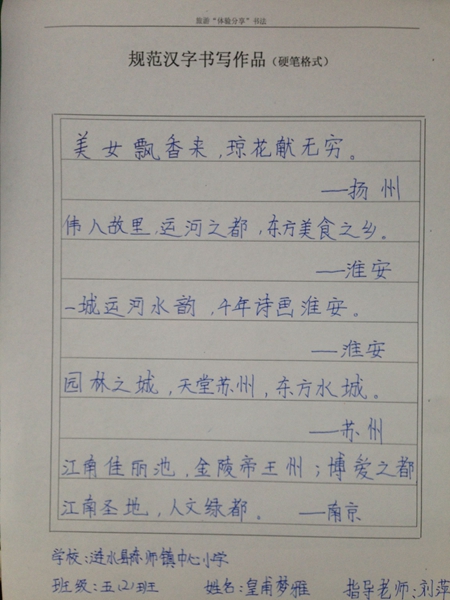 旅游“体验分享”书法
规范汉字书写作品（硬笔格式）
美女飘香来，琼花献无穷。
—扬州
伟人故里，运河之都，东方美食之乡。
—淮安
一城运河水韵，千年诗画淮安。
—淮安
园林之城，天堂苏州，东方水城。
—苏州
江南佳丽池，金陵帝王州；博爱之都
江南圣地，人文绿都。—南京
学校：涟水县南师镇中心小学
班级：五(2)班 姓名：皇甫梦雅 指导老师：刘萍